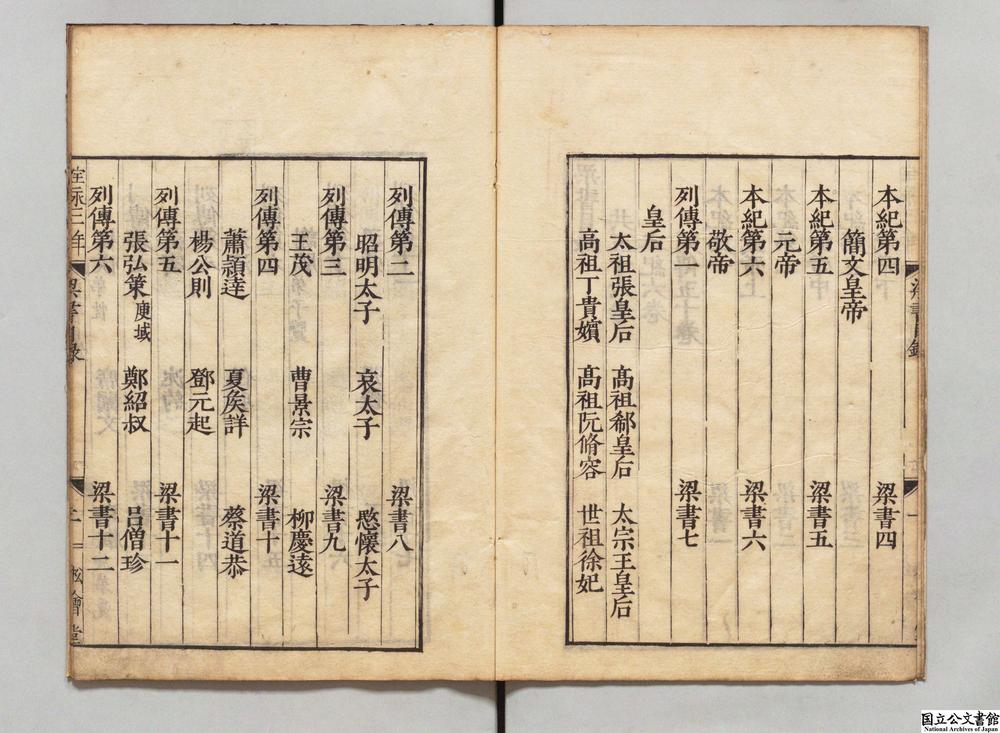 本紀第四 梁書四
簡文皇帝
本紀第五 梁書五
元帝
本紀第六 梁書六
敬帝
列傳第一 梁書七
皇后
太祖張皇后 髙祖郗皇后 太宗王皇后
高祖丁貴嬪 髙祖阮脩容 世祖徐妃
列傳第二 梁書八
昭明太子 哀太子 愍懷太子
列傳第三 梁書九
王茂 曹景宗 柳慶遠
列傳第四 梁書十
蕭頴達 夏矦詳 蔡道恭
楊公則 鄧元起
列傳第五 梁書十一
張弘策庾域 鄭紹叔 吕僧珍
列傳第六 梁書十二
梁書目録
二
松會堂
国立公文書館
National Archives of Japan